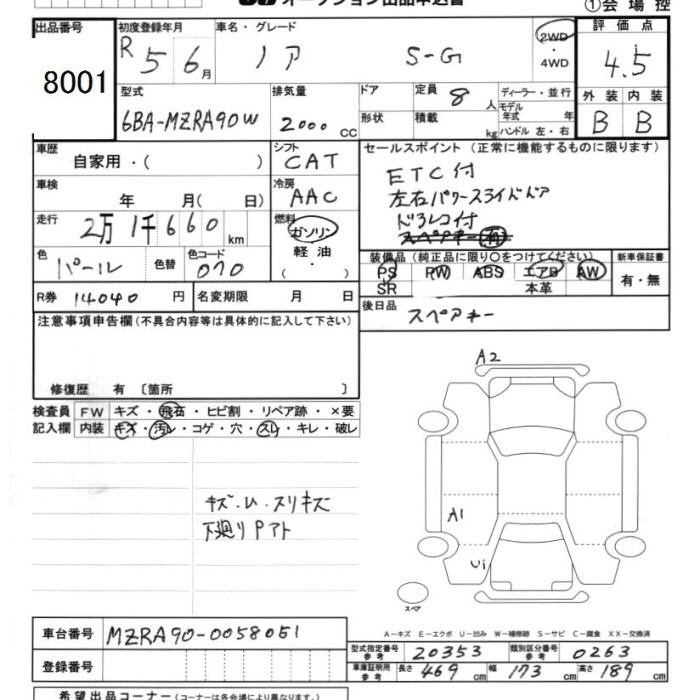 オークション出品申込書 ①会場控
出品番号 初度登録年月 車名・グレード 2WD・4WD 評価点
8001 R 5 6月 ノア S-G 4.5
型式 排気量 ドア 定員 8人 ディーラー・並行 外装 内装
6BA-MZRA90W 2000cc 形状 積載 kg モデル年式 年 ハンドル 左・右 B B
車歴 自家用・( ) シフト CAT セールスポイント (正常に機能するものに限ります)
車検 年 月(日) 冷房 AAC ETC付
左右パワースライドドア
走行 2万1千660km 燃料 ガソリン 軽油・( ) ドラレコ付
スペアキー有
色 パール 色替 色コード 070 装備品 (純正品に限り○をつけてください) 新車保証書
PS PW ABS エアB AW 有・無
SR 本革
R券 14040円 名変期限 月 日 後日品 スペアキー
注意事項申告欄 (不具合内容等は具体的に記入して下さい)
修復歴 有 〔箇所 〕
検査員記入欄 FW キズ・飛石・ヒビ割・リペア跡・×要
内装 キズ・汚レ・コゲ・穴・スレ・キレ・破レ
A2
A1
U1
スペア
キズ・U・スリキズ
下廻りPアト
A-キズ E-エクボ U-凹み W-補修跡 S-サビ C-腐食 XX-交換済
車台番号 MZRA90-0058051
型式指定番号 参考 20353 類別区分番号 参考 0263
登録番号 車庫証明用 参考 長さ 469cm 幅 173cm 高さ 189cm
希望出品コーナー (コーナーは各会場により異なります。)